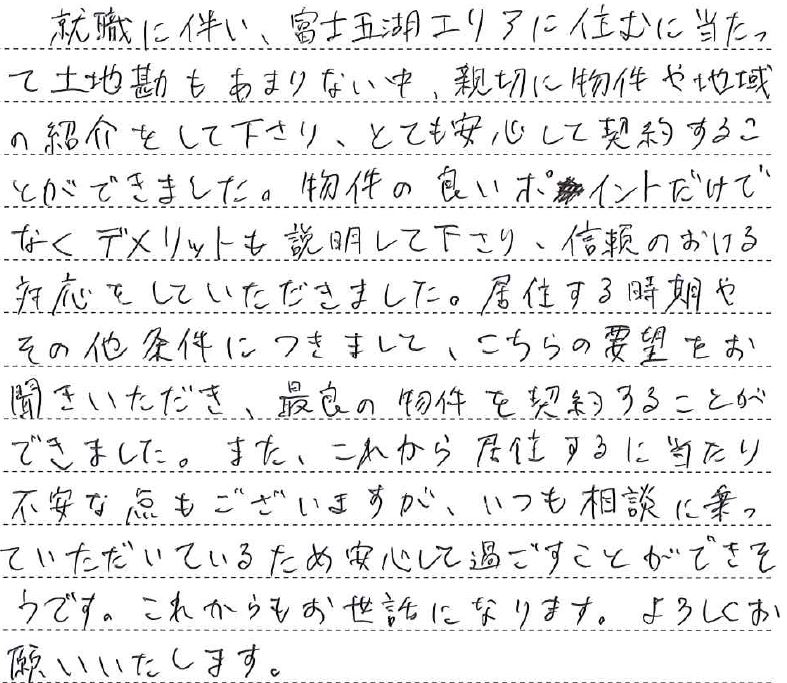 就職に伴い、富士五湖エリアに住むに当たっ
て土地勘もあまりない中、親切に物件や地域
の紹介をして下さり、とても安心して契約するこ
とができました。物件の良いポイントだけで
なくデメリットも説明して下さり、信頼のおける
対応をしていただきました。居住する時期や
その他条件につきまして、こちらの要望をお
聞きいただき、最良の物件を契約することが
できました。また、これから居住するに当たり
不安な点もございますが、いつも相談に乗っ
ていただいているため安心して過ごすことができそ
うです。これからもお世話になります。よろしくお
願いいたします。